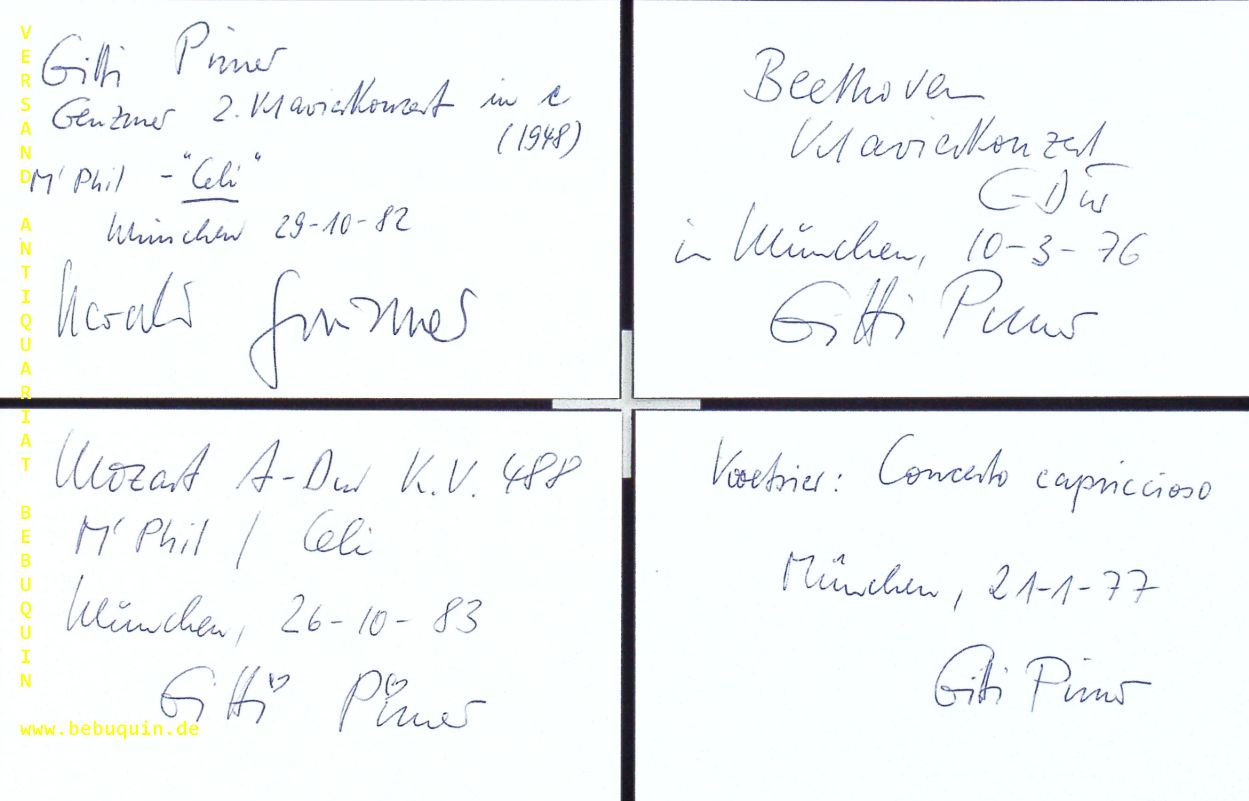 Gitti Pirner
Genzmer 2. Klavierkonzert in e
(1948)
M' Phil - "Celi"
München 29-10-82
Harald Genzmer
Beethoven
Klavierkonzert
C-Dur
in München, 10-3-76
Gitti Pirner
Mozart A-Dur K.V. 488
M' Phil / Celi
München, 26-10-83
Gitti Pirner
Concerto capriccioso
München, 21-1-77
Gitti Pirner
VERSAND ANTIQUARIAT BEBUQUIN
www.bebuquin.de